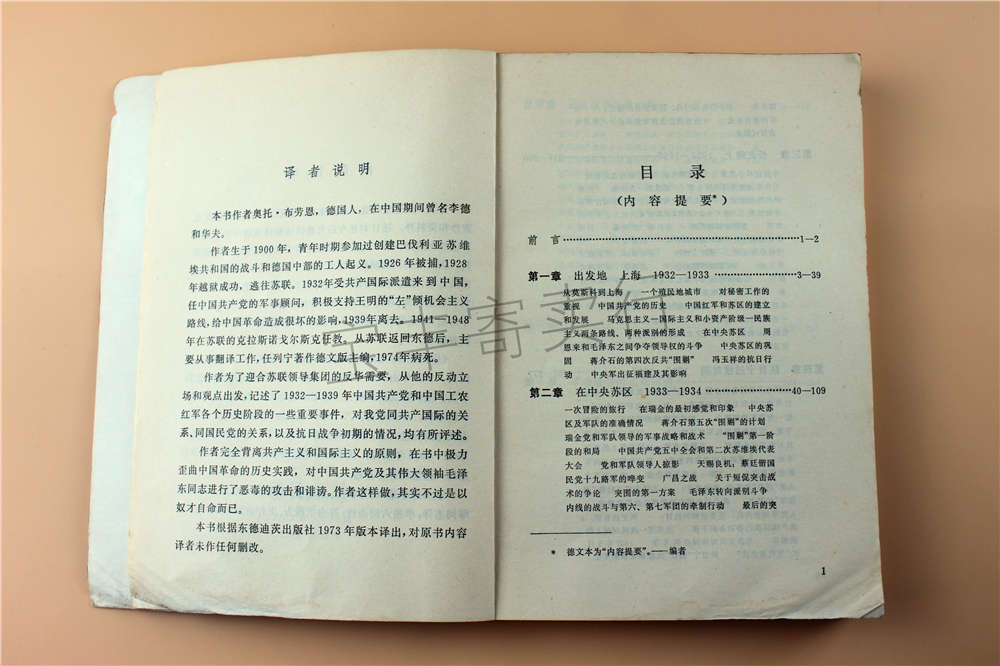 译者说明
本书作者奥托·布劳恩，德国人，在中国期间曾名李德
和华夫。
作者生于1900年，青年时期参加过创建巴伐利亚苏维
埃共和国的战斗和德国中部的工人起义。1926年被捕，1928
年越狱成功，逃往苏联。1932年受共产国际派遣来到中国，
任中国共产党的军事顾问，积极支持王明的“左”倾机会主义
路线，给中国革命造成很坏的影响，1939年离去。1941—1948
年在苏联的克拉斯诺戈尔斯克任教，从苏联返回东德后，主
要从事翻译工作，任列宁著作德文版主编，1974年病死。
作者为了迎合苏联领导集团的反华需要，从他的反动立
场和观点出发，记述了1932—1939年中国共产党和中国工农
红军各个历史阶段的一些重要事件，对我党同共产国际的关
系、同国民党的关系，以及抗日战争初期的情况，均有所评述。
作者完全背离共产主义和国际主义的原则，在书中极力
歪曲中国革命的历史实践，对中国共产党及其伟大领袖毛泽
东同志进行了恶毒的攻击和诽谤。作者这样做，其实不过是以
奴才自命而已。
本书根据东德迪茨出版社1973年版本译出，对原书内容
译者未作任何删改。
目录
（内容提要*）
前言……1—2
第一章 出发地 上海 1932—1933……3—39
从莫斯科到上海 一个殖民地城市 对秘密工作的
重视 中国共产党的历史 中国红军和苏区的建立
和发展 马克思主义—国际主义和小资产阶级—民族
主义两条路线、两种派别的形成 在中央苏区 周
恩来和毛泽东之间争夺领导权的斗争 中央苏区的巩
固 蒋介石的第四次反共“围剿” 冯玉祥的抗日行
动 中央军出征福建及其影响
第二章 在中央苏区 1933—1934……40—109
一次冒险的旅行 在瑞金的最初感觉和印象 中央苏
区及军队的准确情况 蒋介石第五次“围剿”的计划
瑞金党和军队领导的军事战略和战术 “围剿”第一阶
段的和局 中国共产党五中全会和第二次苏维埃代表
大会 党和军队领导人掠影 天赐良机：蔡廷锴国
民党十九路军的哗变 广昌之战 关于短促突击战
术的争论 突围的第一方案 毛泽东转向派别斗争
内线的战斗与第六、第七军团的牵制行动 最后的突
* 德文本为“内容提要”。——编者
1